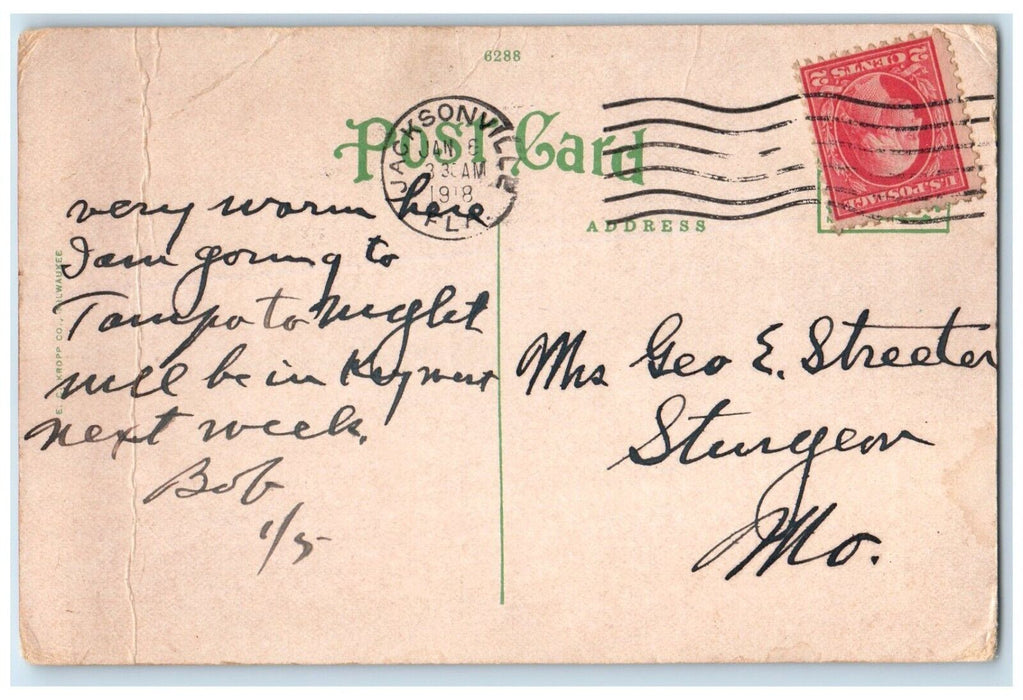 6288
Post Card
JACKSONVILLE
JAN 6
3 AM
1918
FLA
2 CENTS 2
U.S. POSTAGE
ADDRESS
very warm here.
I am going to
Tampa to night
will be in Key west
next week.
Bob
1/5
Mrs Geo E. Streeter
Sturgeon
Mo.
E. C. KROPP CO., MILWAUKEE